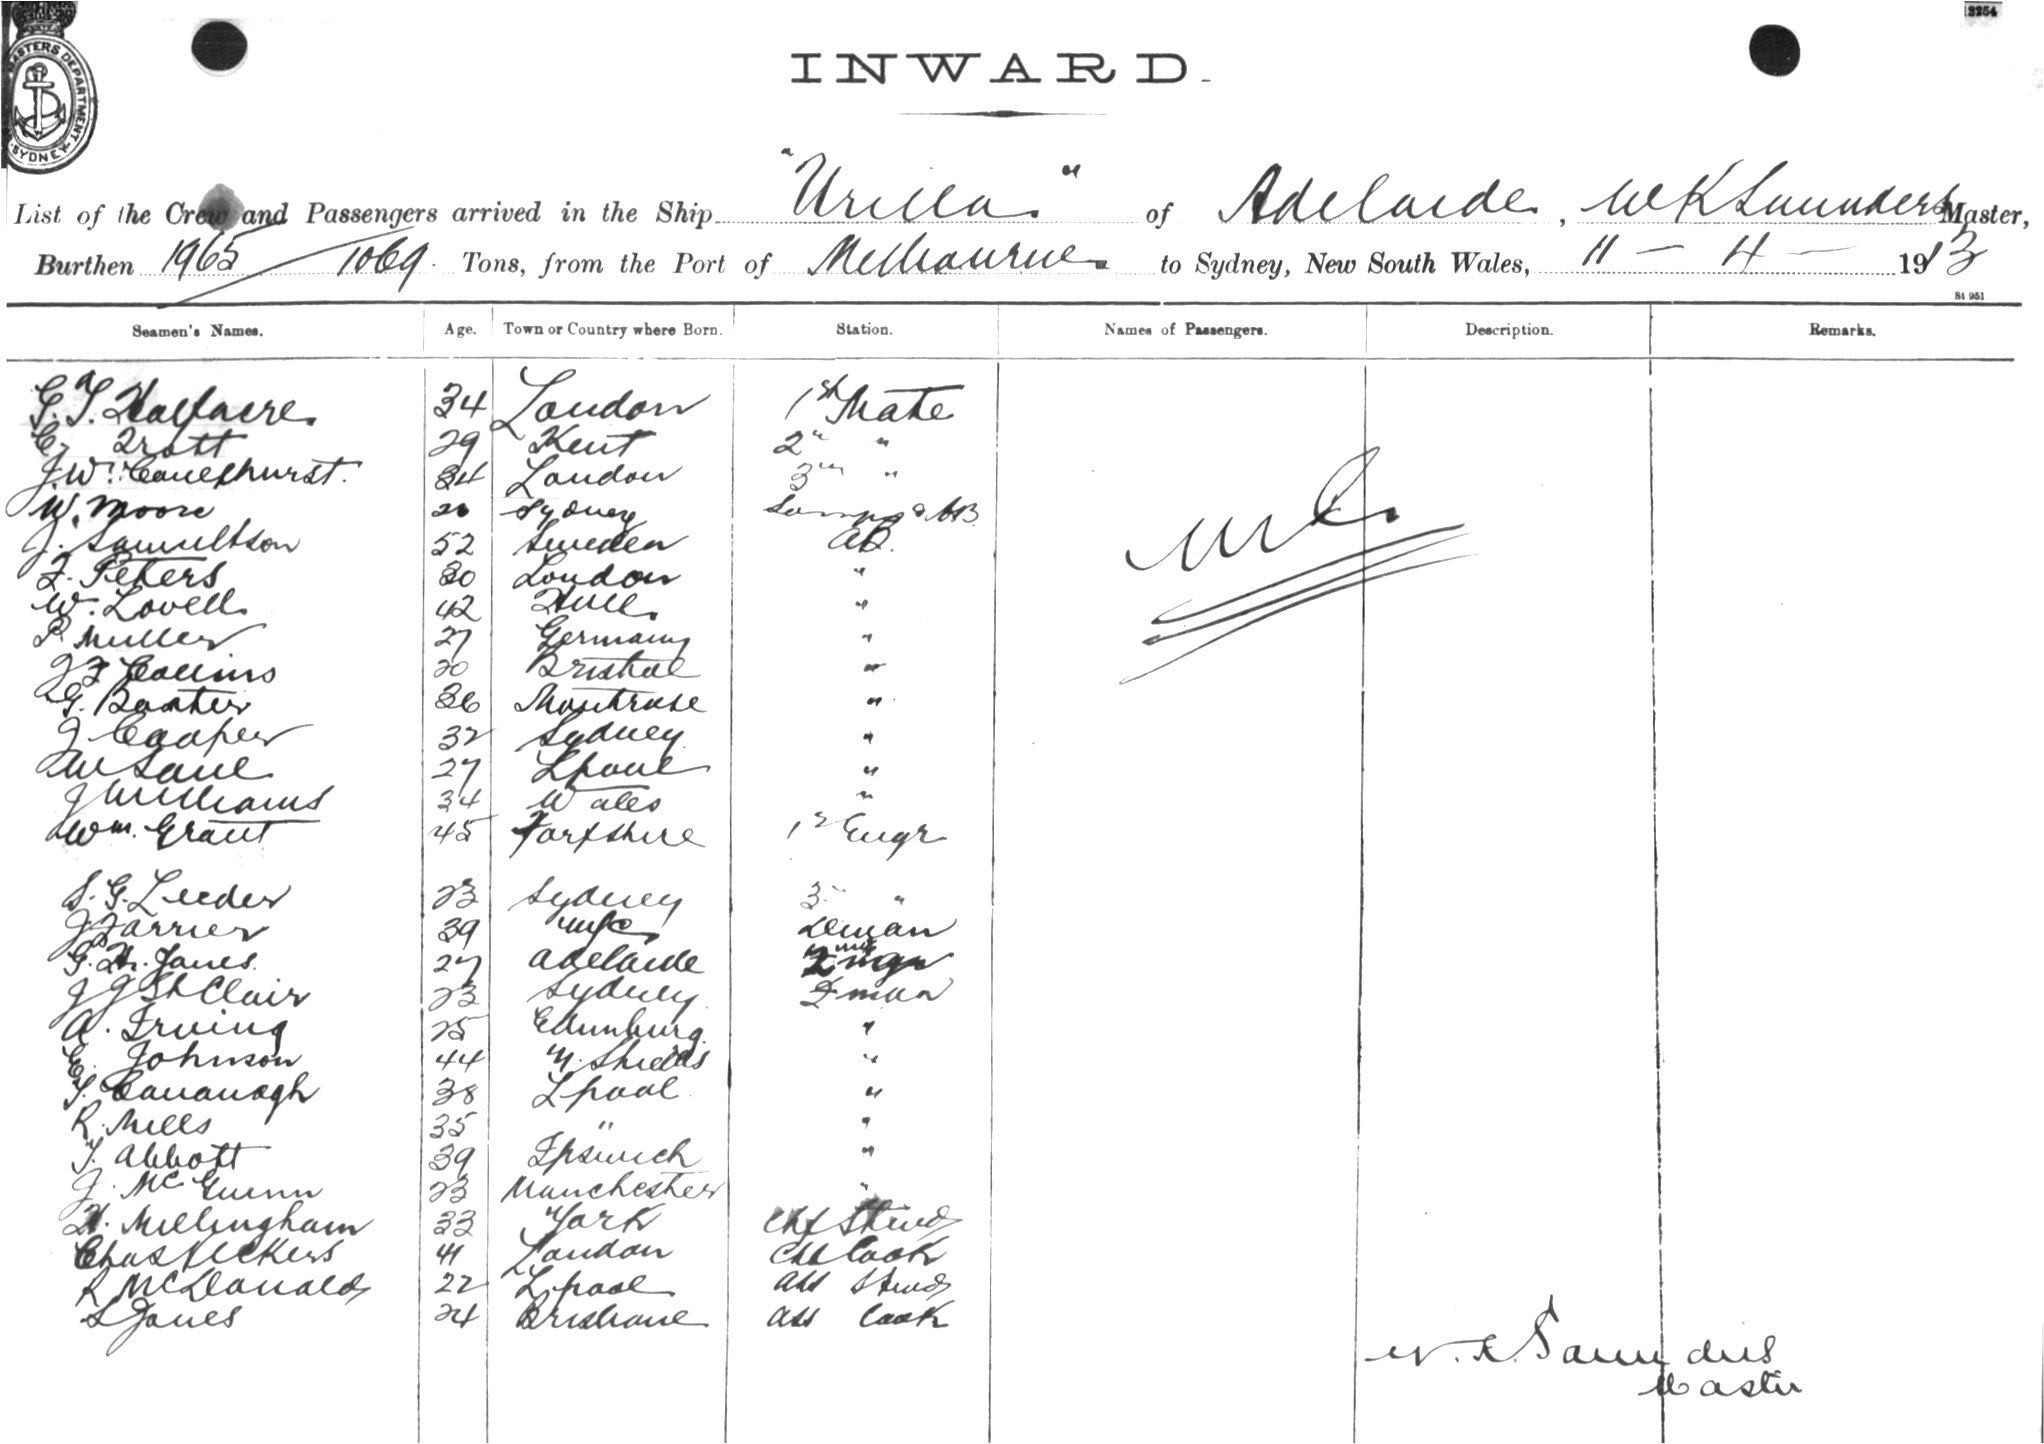 3254
MASTERS DEPARTMENT
SYDNEY
INWARD.
List of the Crew and Passengers arrived in the Ship "Urilla" of Adelaide, W K Saunders Master,
Burthen 1965/1069 Tons, from the Port of Melbourne to Sydney, New South Wales, 11 - 4 - 1913
St 951
Seamen's Names. Age. Town or Country where Born. Station. Names of Passengers. Description. Remarks.
G. T. Halfacre 34 London 1st Mate
C. Trott 29 Kent 2" "
J. W. 34 London 3" "
W. Moore 20 Sydney Lamps & AB
J. Samuelson 52 Sweden AB.
F. Peters 30 London "
W. Lovell 42 Hull "
P. Muller 27 Germany "
J F Collins 20 Bristol "
G. Baxter 36 Montrose "
J Cooper 32 Sydney "
W Lane 27 Lpool "
J Williams 34 Wales "
Wm. Grant 45 Forfshire 1st Engr
S. G. Leeder 23 Sydney 3 "
J Farrier 39 Dman
G. H. Jones 27 Adelaide
J J St Clair 23 Sydney Fman
A. Irving 25 Edinburg "
C. Johnson 44 N. Shields "
T. Cavanagh 38 Lpool "
R. Mills 35 " "
T. Abbott 39 Ipswich "
J. McGuinn 23 Manchester "
H. Millingham 33 York Chf Stewd
Chas Vickers 41 London Chf Cook
R McDonald 22 Lpool Ass Stewd
L Jones 24 Brisbane Ass Cook
W. K. Saunders
Master